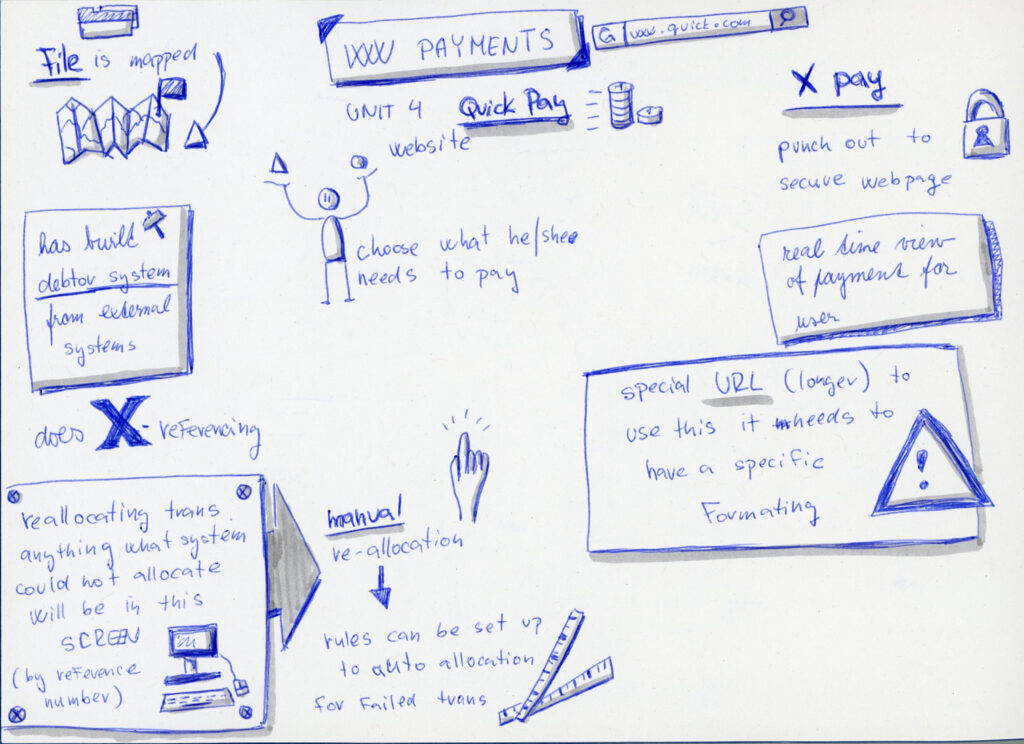 PAYMENTS
www.quick.com
UNIT 4 Quick Pay
website
File is mapped
X pay
punch out to
secure webpage
has built
debtor system
from external
systems
choose what he/shee
needs to pay
real time view
of payment for
user
special URL (longer) to
use this it needs to
have a specific
Formating
does X-referencing
reallocating trans
anything what system
could not allocate
will be in this
SCREEN
(by reference
number)
manual
re-allocation
rules can be set up
to auto allocation
for Failed trans